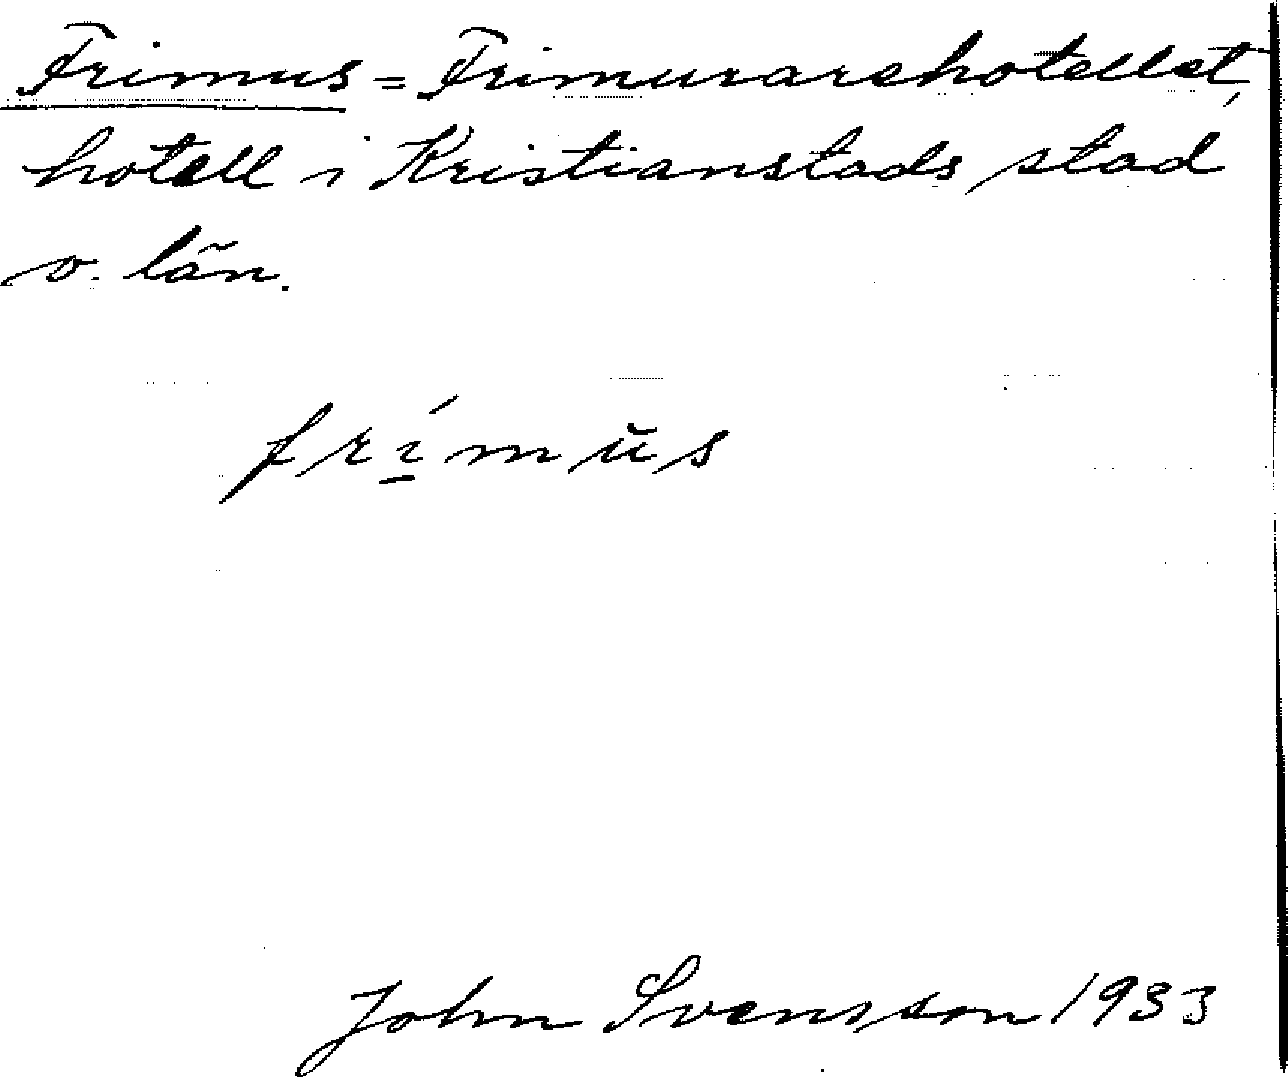 Frimus = Frimurarehotellet,
hotell i Kristianstads stad
o. län.
frí̱mŭs
John Svensson 1933